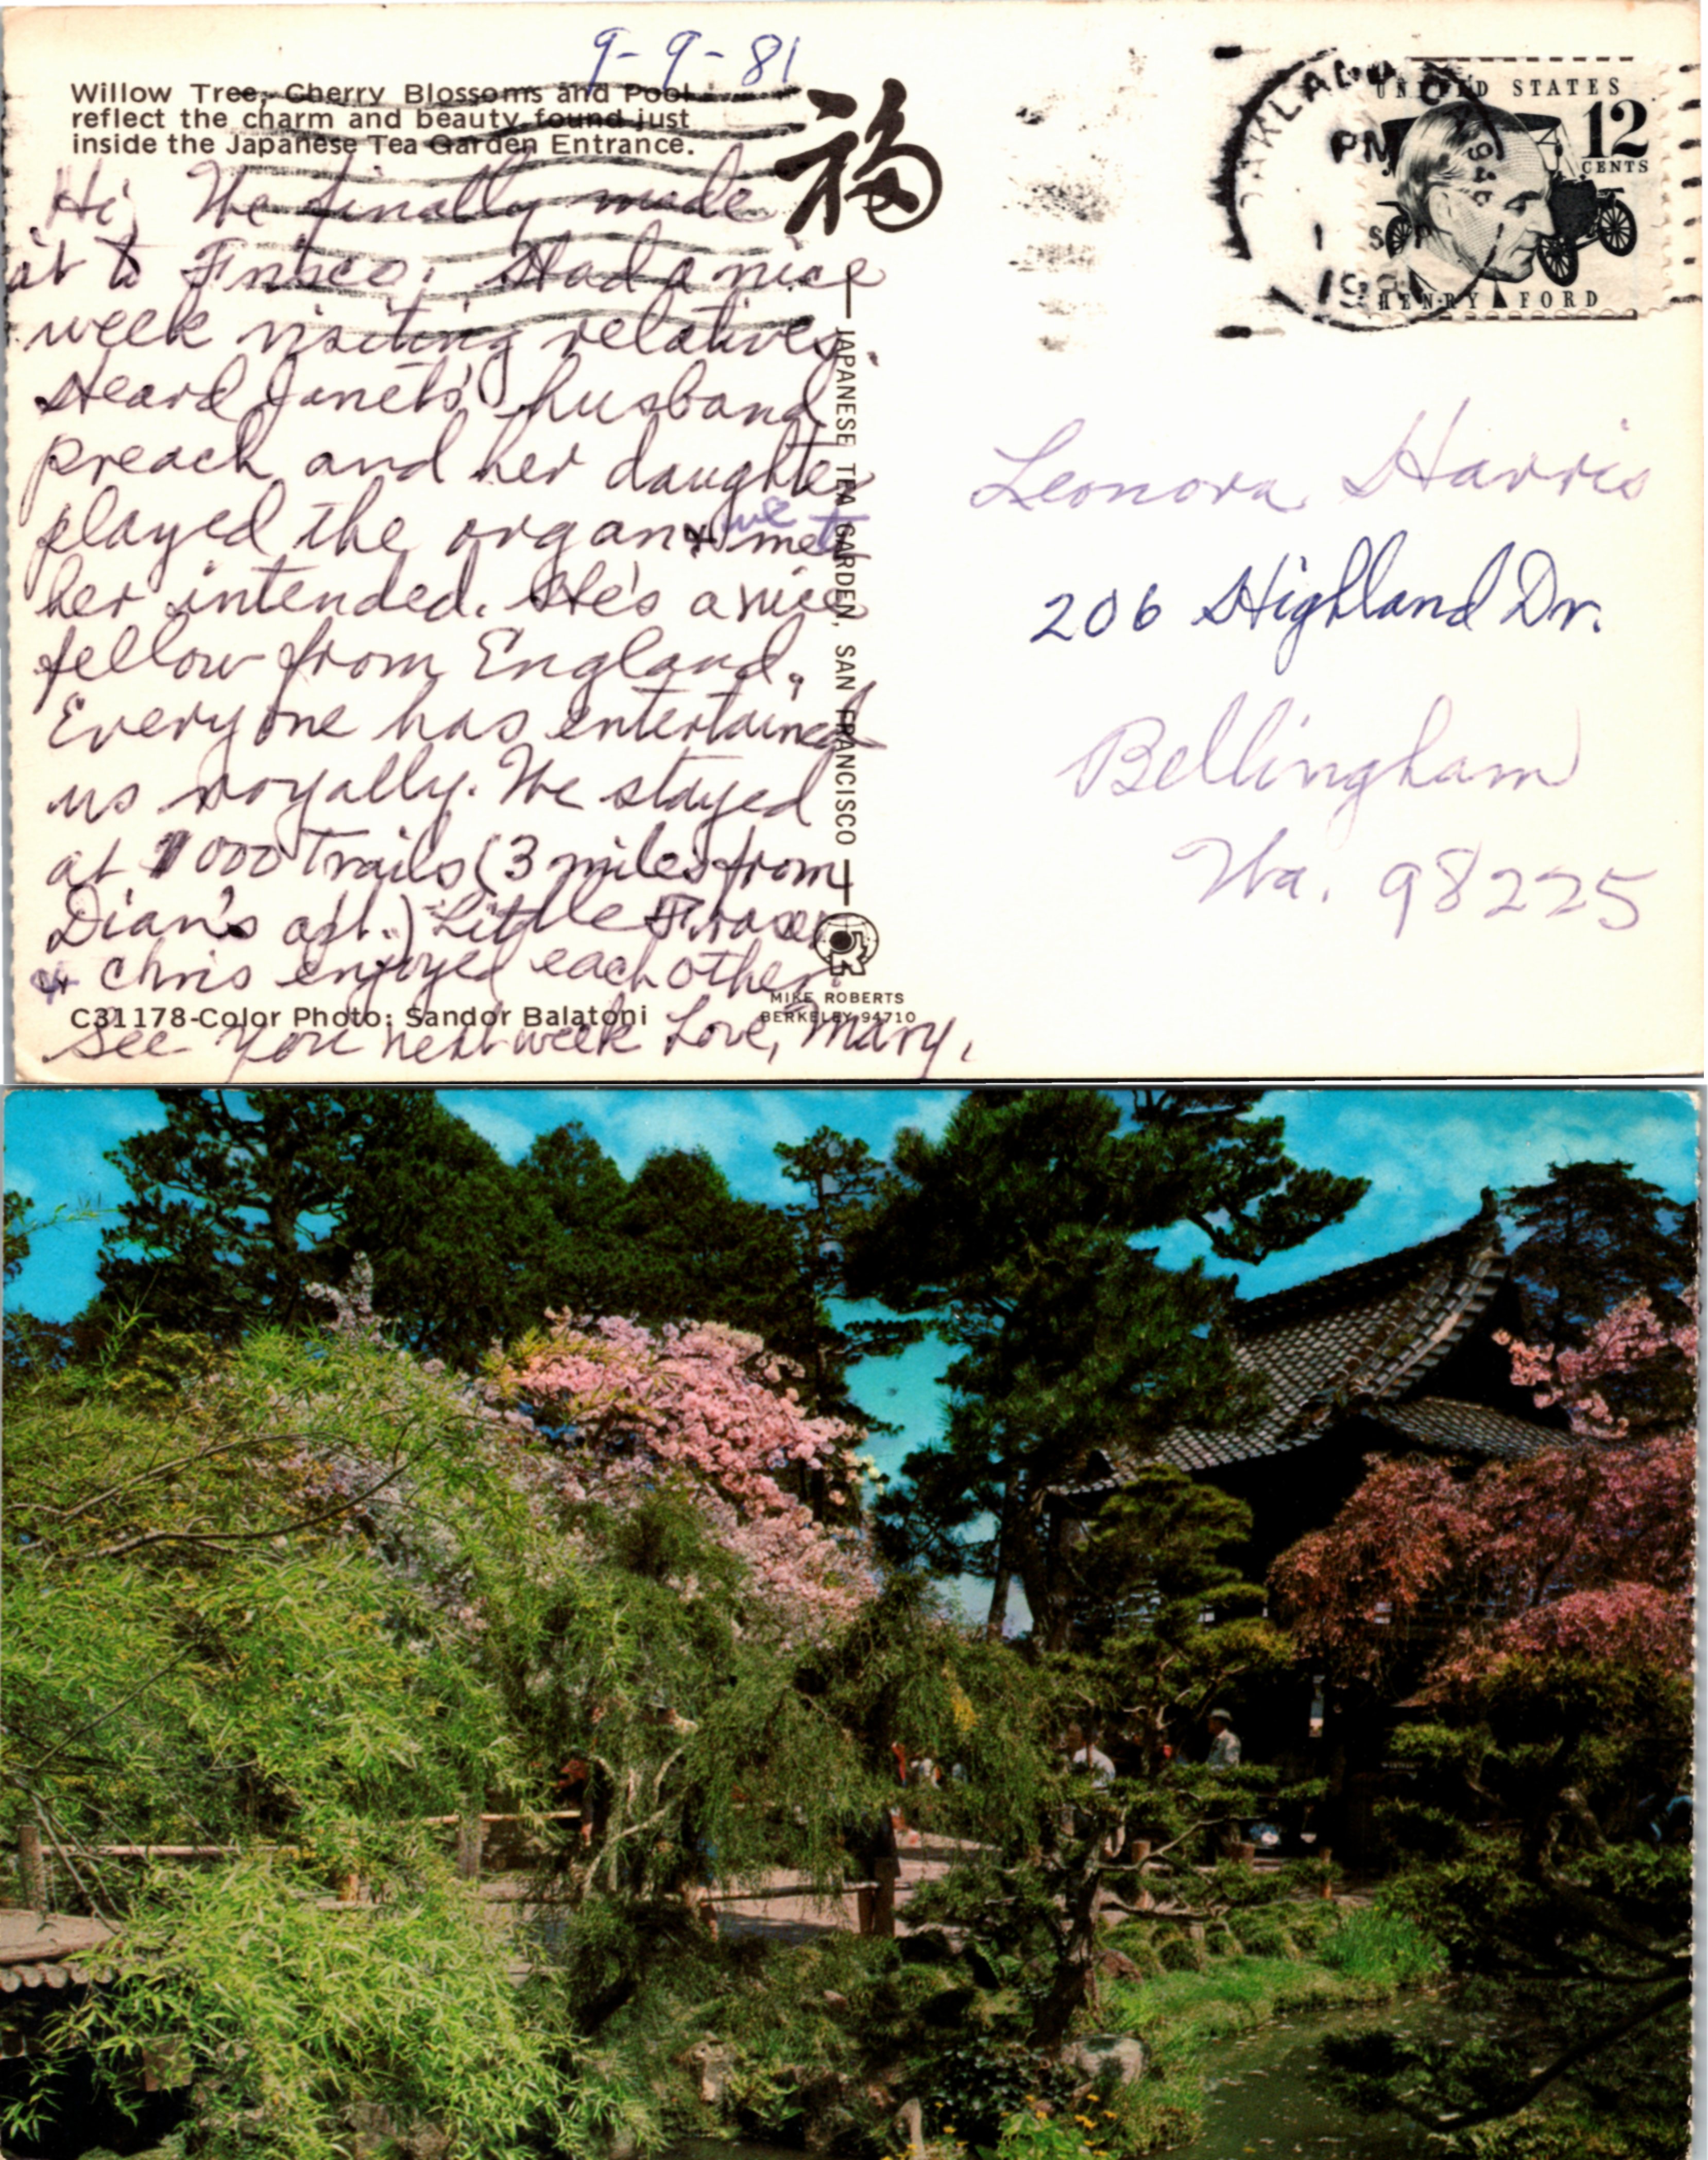 9-9-81
Willow Tree, Cherry Blossoms and Pool
reflect the charm and beauty found just
inside the Japanese Tea Garden Entrance.
福
Hi, We finally made
it to Frisco. Had a nice
week visiting relatives.
Heard Janet's husband
preach and her daughter
played the organ & we met
her intended. He's a nice
fellow from England.
Everyone has entertained
us royally. We stayed
at 1000 Trails (3 miles from
Dian's apt.) Little Fraser
& Chris enjoyed each other.
See you next week Love, Mary.
C31178-Color Photo: Sandor Balatoni
JAPANESE TEA GARDEN, SAN FRANCISCO
MIKE ROBERTS
BERKELEY 94710
OAKLAND, CA
PM
SEP
1981
UNITED STATES
12
CENTS
HENRY FORD
Leonora Harris
206 Highland Dr.
Bellingham
Wa. 98225